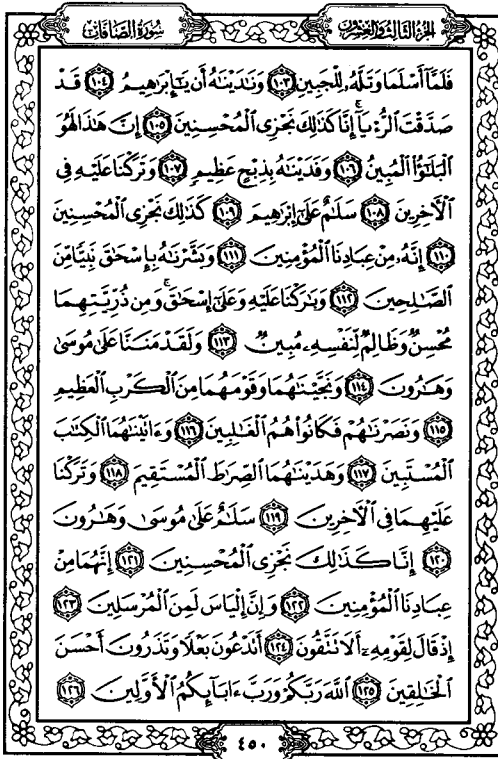 الجزء الثالث والعشرون
سورة الصافات
فَلَمَّآ أَسْلَمَا وَتَلَّهُۥ لِلْجَبِينِ ١٠٣ وَنَٰدَيْنَٰهُ أَن يَٰٓإِبْرَٰهِيمُ ١٠٤ قَدْ
صَدَّقْتَ ٱلرُّءْيَآ إِنَّا كَذَٰلِكَ نَجْزِى ٱلْمُحْسِنِينَ ١٠٥ إِنَّ هَٰذَا لَهُوَ
ٱلْبَلَٰٓؤُا۟ ٱلْمُبِينُ ١٠٦ وَفَدَيْنَٰهُ بِذِبْحٍ عَظِيمٍ ١٠٧ وَتَرَكْنَا عَلَيْهِ فِى
ٱلْءَاخِرِينَ ١٠٨ سَلَٰمٌ عَلَىٰٓ إِبْرَٰهِيمَ ١٠٩ كَذَٰلِكَ نَجْزِى ٱلْمُحْسِنِينَ
١١٠ إِنَّهُۥ مِنْ عِبَادِنَا ٱلْمُؤْمِنِينَ ١١١ وَبَشَّرْنَٰهُ بِإِسْحَٰقَ نَبِيًّا مِّنَ
ٱلصَّٰلِحِينَ ١١٢ وَبَٰرَكْنَا عَلَيْهِ وَعَلَىٰٓ إِسْحَٰقَ وَمِن ذُرِّيَّتِهِمَا
مُحْسِنٌ وَظَالِمٌ لِّنَفْسِهِۦ مُبِينٌ ١١٣ وَلَقَدْ مَنَنَّا عَلَىٰ مُوسَىٰ
وَهَٰرُونَ ١١٤ وَنَجَّيْنَٰهُمَا وَقَوْمَهُمَا مِنَ ٱلْكَرْبِ ٱلْعَظِيمِ
١١٥ وَنَصَرْنَٰهُمْ فَكَانُوا۟ هُمُ ٱلْغَٰلِبِينَ ١١٦ وَءَاتَيْنَٰهُمَا ٱلْكِتَٰبَ
ٱلْمُسْتَبِينَ ١١٧ وَهَدَيْنَٰهُمَا ٱلصِّرَٰطَ ٱلْمُسْتَقِيمَ ١١٨ وَتَرَكْنَا
عَلَيْهِمَا فِى ٱلْءَاخِرِينَ ١١٩ سَلَٰمٌ عَلَىٰ مُوسَىٰ وَهَٰرُونَ
١٢٠ إِنَّا كَذَٰلِكَ نَجْزِى ٱلْمُحْسِنِينَ ١٢١ إِنَّهُمَا مِنْ
عِبَادِنَا ٱلْمُؤْمِنِينَ ١٢٢ وَإِنَّ إِلْيَاسَ لَمِنَ ٱلْمُرْسَلِينَ ١٢٣
إِذْ قَالَ لِقَوْمِهِۦٓ أَلَا تَتَّقُونَ ١٢٤ أَتَدْعُونَ بَعْلًا وَتَذَرُونَ أَحْسَنَ
ٱلْخَٰلِقِينَ ١٢٥ ٱللَّهَ رَبَّكُمْ وَرَبَّ ءَابَآئِكُمُ ٱلْأَوَّلِينَ ١٢٦
٤٥٠